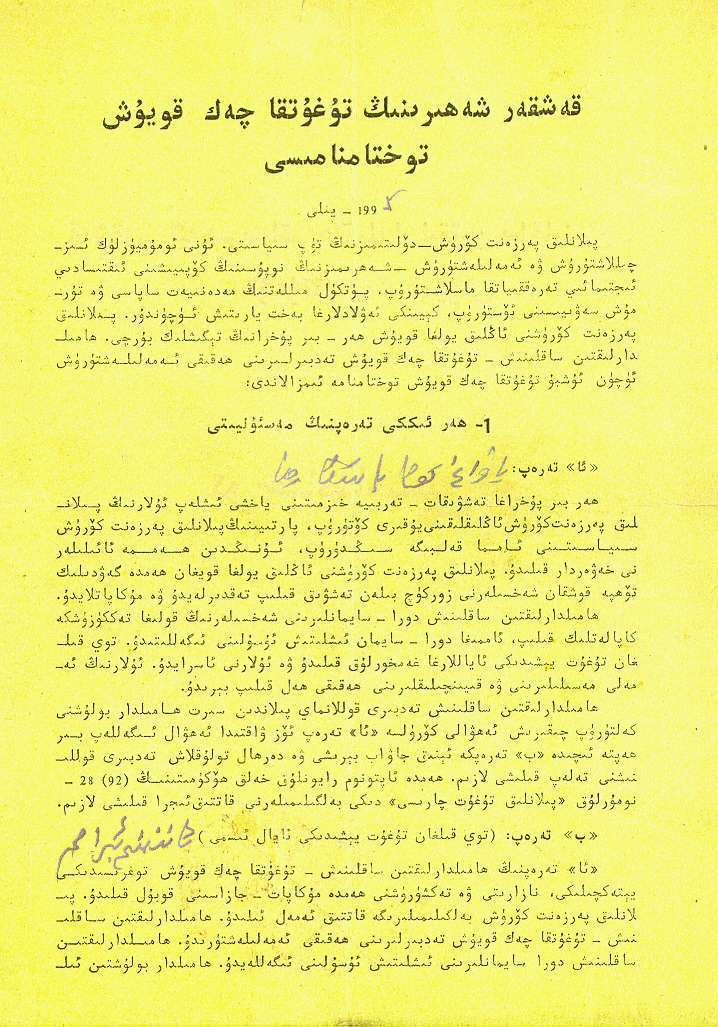 قەشقەر شەھىرىنىڭ تۇغۇتقا چەك قويۇش
توختامنامىسى
199 – يىلى
پىلانلىق پەرزەنت كۆرۈش—دۆلىتىمىزنىڭ تۈپ سىياسىتى. ئۇنى ئومۇميۈزلۈك ئىز-
چىللاشتۇرۇش ۋە ئەمەلىلەشتۈرۈش —شەھرىمىزنىڭ نوپۇسىنىڭ كۆپىيىشىنى ئىقتىسادىي
ئىجتىمائىي تەرەققىياتقا ماسلاشتۇرۇپ، پۈتكۈل مىللەتنىڭ مەدەنىيەت ساپاسى ۋە تۇر-
مۇش سەۋىيىسىنى ئۆستۈرۈپ، كېيىنكى ئەۋلادلارغا بەخت يارىتىش ئۈچۈندۇر. پىلانلىق
پەرزەنت كۆرۈشنى ئاڭلىق يولغا قويۇش ھەر – بىر پۇخرانىڭ تېگىشلىك بۇرچى. ھامىلـ
دارلىقتىن ساقلىنىش – تۇغۇتقا چەك قويۇش تەدبىرلىرىنى ھەقىقى ئەمەلىلەشتۈرۈش
ئۈچۈن ئۇشبۇ تۇغۇتقا چەك قويۇش توختامنامە ئىمزالاندى:
1- ھەر ئىككى تەرەپنىڭ مەسئۇلىيىتى
«ئا» تەرەپ:
ھەر بىر پۇخراغا تەشۋىقات – تەربىيە خىزمىتىنى ياخشى ئىشلەپ ئۇلارنىڭ پىلانـ
لىق پەرزەنت كۆرۈش ئاڭلىقلىقىنى يۇقىرى كۆتۈرۈپ، پارتىيىنىڭ پىلانلىق پەرزەنت كۆرۈش
سىياسىتىنى ئامما قەلبىگە سىڭدۈرۈپ، ئۇنىڭدىن ھەممە ئائىلىلەر
نى خەۋەردار قىلىدۇ. پىلانلىق پەرزەنت كۆرۈشنى ئاڭلىق يولغا قويغان ھەمدە گەۋدىلىك
تۆھپە قوشقان شەخسىلەرنى زورگۈچ بىلەن تەشۋىق قىلىپ تەقدىرلەيدۇ ۋە مۇكاپاتلايدۇ.
ھامىلدارلىقتىن ساقلىنىش دورا – سايمانلىرىنى شەخسىلەرنىڭ قولىغا تەگكۈزۈشكە
كاپالەتلىك قىلىپ، ئاممىغا دورا – سايمان ئىشلىتىش ئۇسۇلىنى ئىگەللىتىدۇ. توي قىلـ
غان تۇغۇت يېشىدىكى ئاياللارغا غەمخورلۇق قىلىدۇ ۋە ئۇلارنى ئاسرايدۇ. ئۇلارنىڭ ئەـ
مەلى مەسىلىلىرىنى ۋە قىيىنچىلىقلىرىنى ھەقىقى ھەل قىلىپ بېرىدۇ.
ھامىلدارلىقتىن ساقلىنىش تەدبىرى قوللانماي پىلاندىن سىرت ھامىلدار بولۇشنى
كەلتۈرۈپ چىقىرىش ئەھۋالى كۆرۈلسە «ئا» تەرەپ ئۆز ۋاقتىدا ئەھۋال ئىگەللەپ بىر
ھەپتە ئىچىدە «ب» تەرەپكە ئېنىق جاۋاب بېرىشى ۋە دەرھال تولۇقلاش تەدبىرى قوللىـ
نىشنى تەلەپ قىلىشى لازىم. ھەمدە ئاپتونوم رايونلۇق خەلق ھۆكۈمىتىنىڭ (92) 28 –
نومۇرلۇق «پىلانلىق تۇغۇت چارىسى» دىكى بەلگىلىمىلەرنى قاتتىق ئىجرا قىلىشى لازىم.
«ب» تەرەپ: (توي قىلغان تۇغۇت يېشىدىكى ئايال ئىسمى)
«ئا» تەرەپنىڭ ھامىلدارلىقتىن ساقلىنىش – تۇغۇتقا چەك قويۇش توغرىسىدىكى
يېتەكچىلىكى، نازارىتى ۋە تەكشۈرۈشنى ھەمدە مۇكاپات – جازاسىنى قوبۇل قىلىدۇ. پىـ
لانلىق پەرزەنت كۆرۈش بەلگىلىمىلىرىگە قاتتىق ئەمەل قىلىدۇ. ھامىلدارلىقتىن ساقلىـ
نىش – تۇغۇتقا چەك قويۇش تەدبىرلىرىنى ھەقىقى ئەمەلىلەشتۈرىدۇ. ھامىلدارلىقتىن
ساقلىنىش دورا سايمانلىرىنى ئىشلىتىش ئۇسۇلىنى ئىگەللەيدۇ. ھامىلدار بولۇشتىن ئىلـ